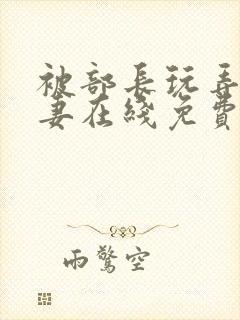 被部長玩弄
妻在綫免費
雨驚空